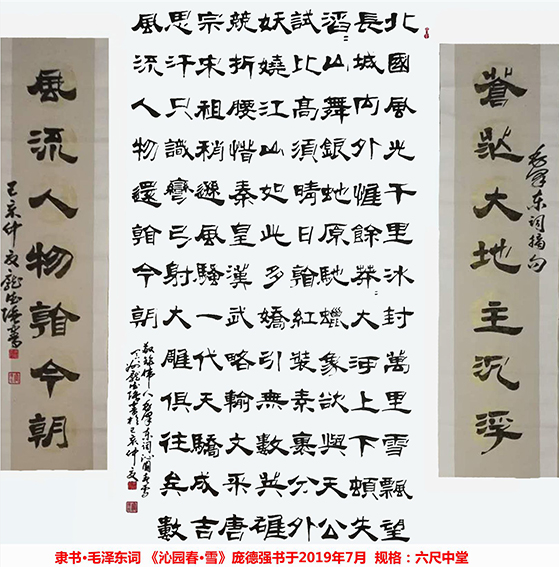 蒼茫大地主沉浮
毛澤東詞摘句
北國風光千里冰封萬里雪飄望
長城內外惟餘莽〻大河上下頓失
滔〻山舞銀蛇原馳蠟象欲與天公
試比高須晴日看紅裝素裹分外
妖嬈江山如此多嬌引無數英雄
競折腰惜秦皇漢武略輸文采唐
宗宋祖稍遜風騷一代天驕成吉
思汗只識彎弓射大雕俱往矣數
風流人物還看今朝
敬錄偉人毛澤東詞沁園春雪
龐德强書於己亥仲夏
風流人物看今朝
己亥仲夏龐德强書
隶书•毛泽东词 《沁园春•雪》庞德强书于2019年7月 规格：六尺中堂